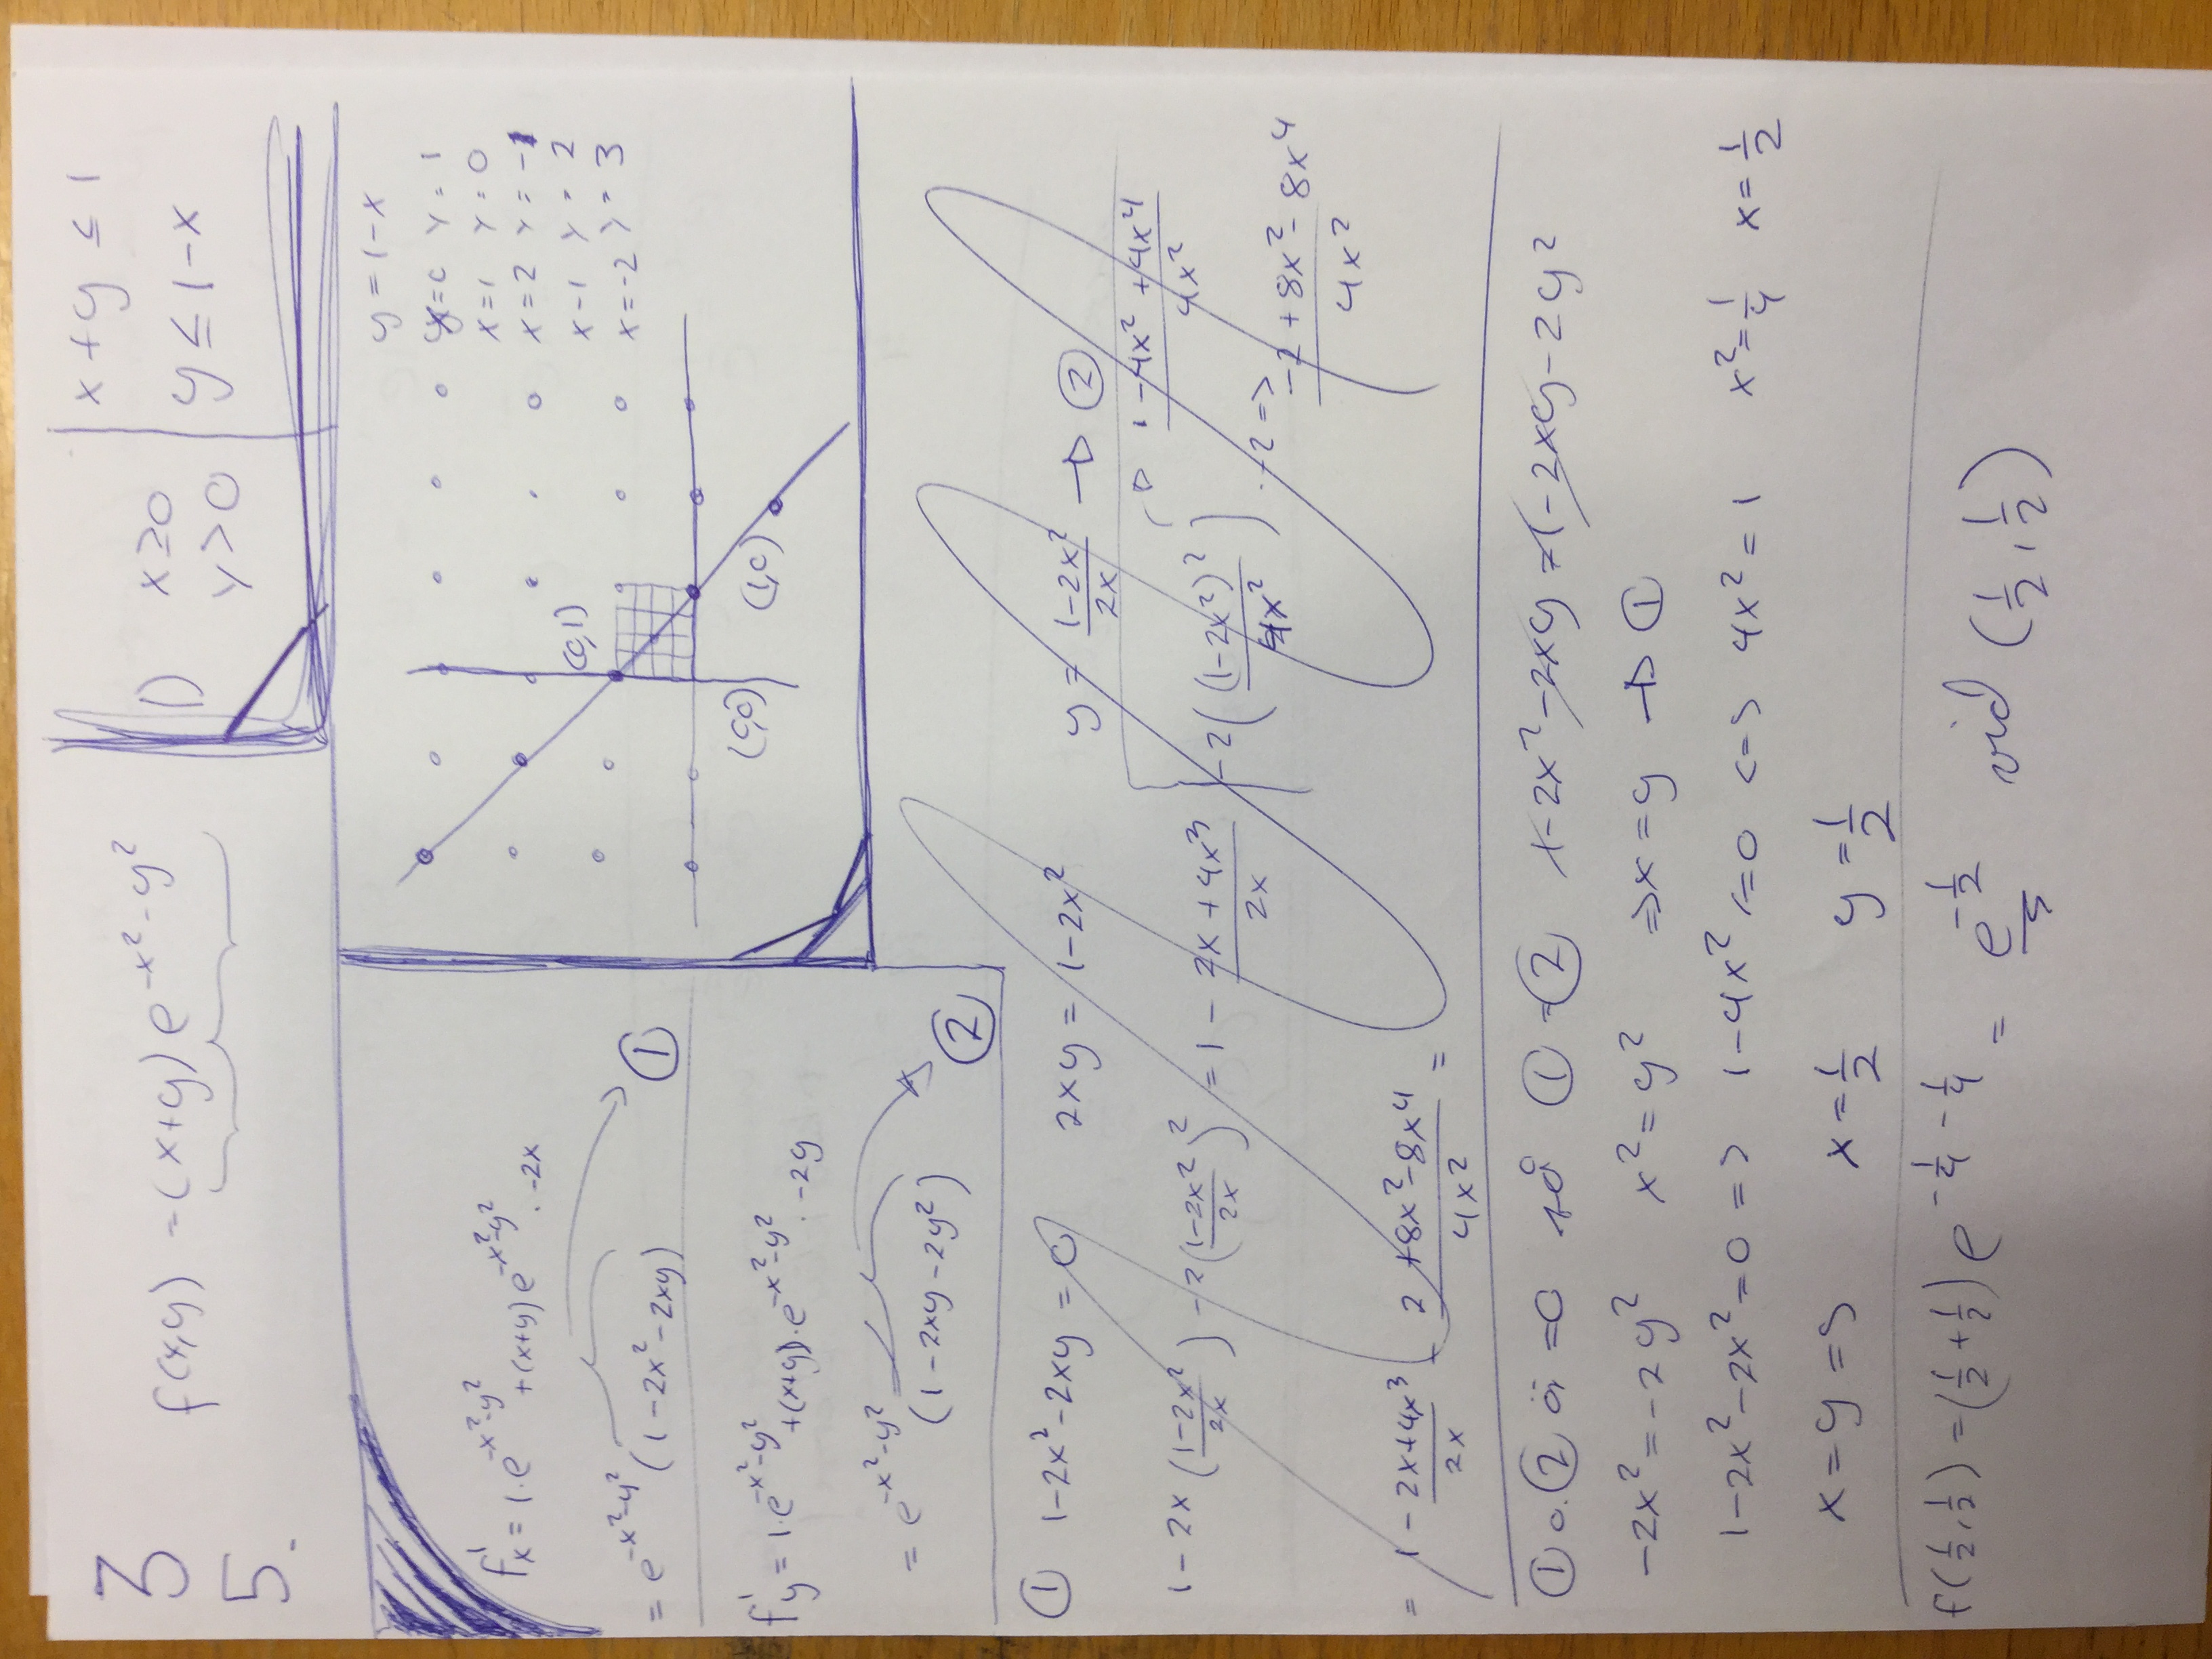 3
5.
f(x,y) = (x+y)e^{-x²-y²}
D
x≥0
y>0
x+y ≤ 1
y ≤ 1-x
f'x = 1·e^{-x²-y²} +(x+y)e^{-x²-y²} · -2x
= e^{-x²-y²} (1-2x²-2xy) ①
f'y = 1·e^{-x²-y²} +(x+y)·e^{-x²-y²} · -2y
= e^{-x²-y²} (1-2xy-2y²) ②
y = 1-x
x=0 y=1
x=1 y=0
x=2 y=-1
x-1 y=2
x=-2 y=3
(0,1)
(0,0) (1,0)
① 1-2x²-2xy = 0 2xy = 1-2x² y = \frac{1-2x²}{2x} → ②
1-2x (\frac{1-2x²}{2x}) -2(\frac{1-2x²}{2x})² = 1- \frac{2x+4x³}{2x} -2(\frac{(1-2x²)²}{4x²}) → \frac{1-4x²+4x⁴}{4x²}
·-2 => \frac{-2+8x²-8x⁴}{4x²}
= 1- \frac{2x+4x³}{2x} - \frac{2+8x²-8x⁴}{4x²} =
① o. ② är =0 så ① = ② 1-2x²-2xy = 1-2xy-2y²
-2x²=-2y² x²=y² => x=y → ①
1-2x²-2x²=0 => 1-4x²=0 <=> 4x²=1 x²=\frac{1}{4} x=\frac{1}{2}
x=y => x=\frac{1}{2} y=\frac{1}{2}
f(\frac{1}{2},\frac{1}{2}) = (\frac{1}{2}+\frac{1}{2}) e^{-\frac{1}{4}-\frac{1}{4}} = e^{-\frac{1}{2}} vid (\frac{1}{2},\frac{1}{2})